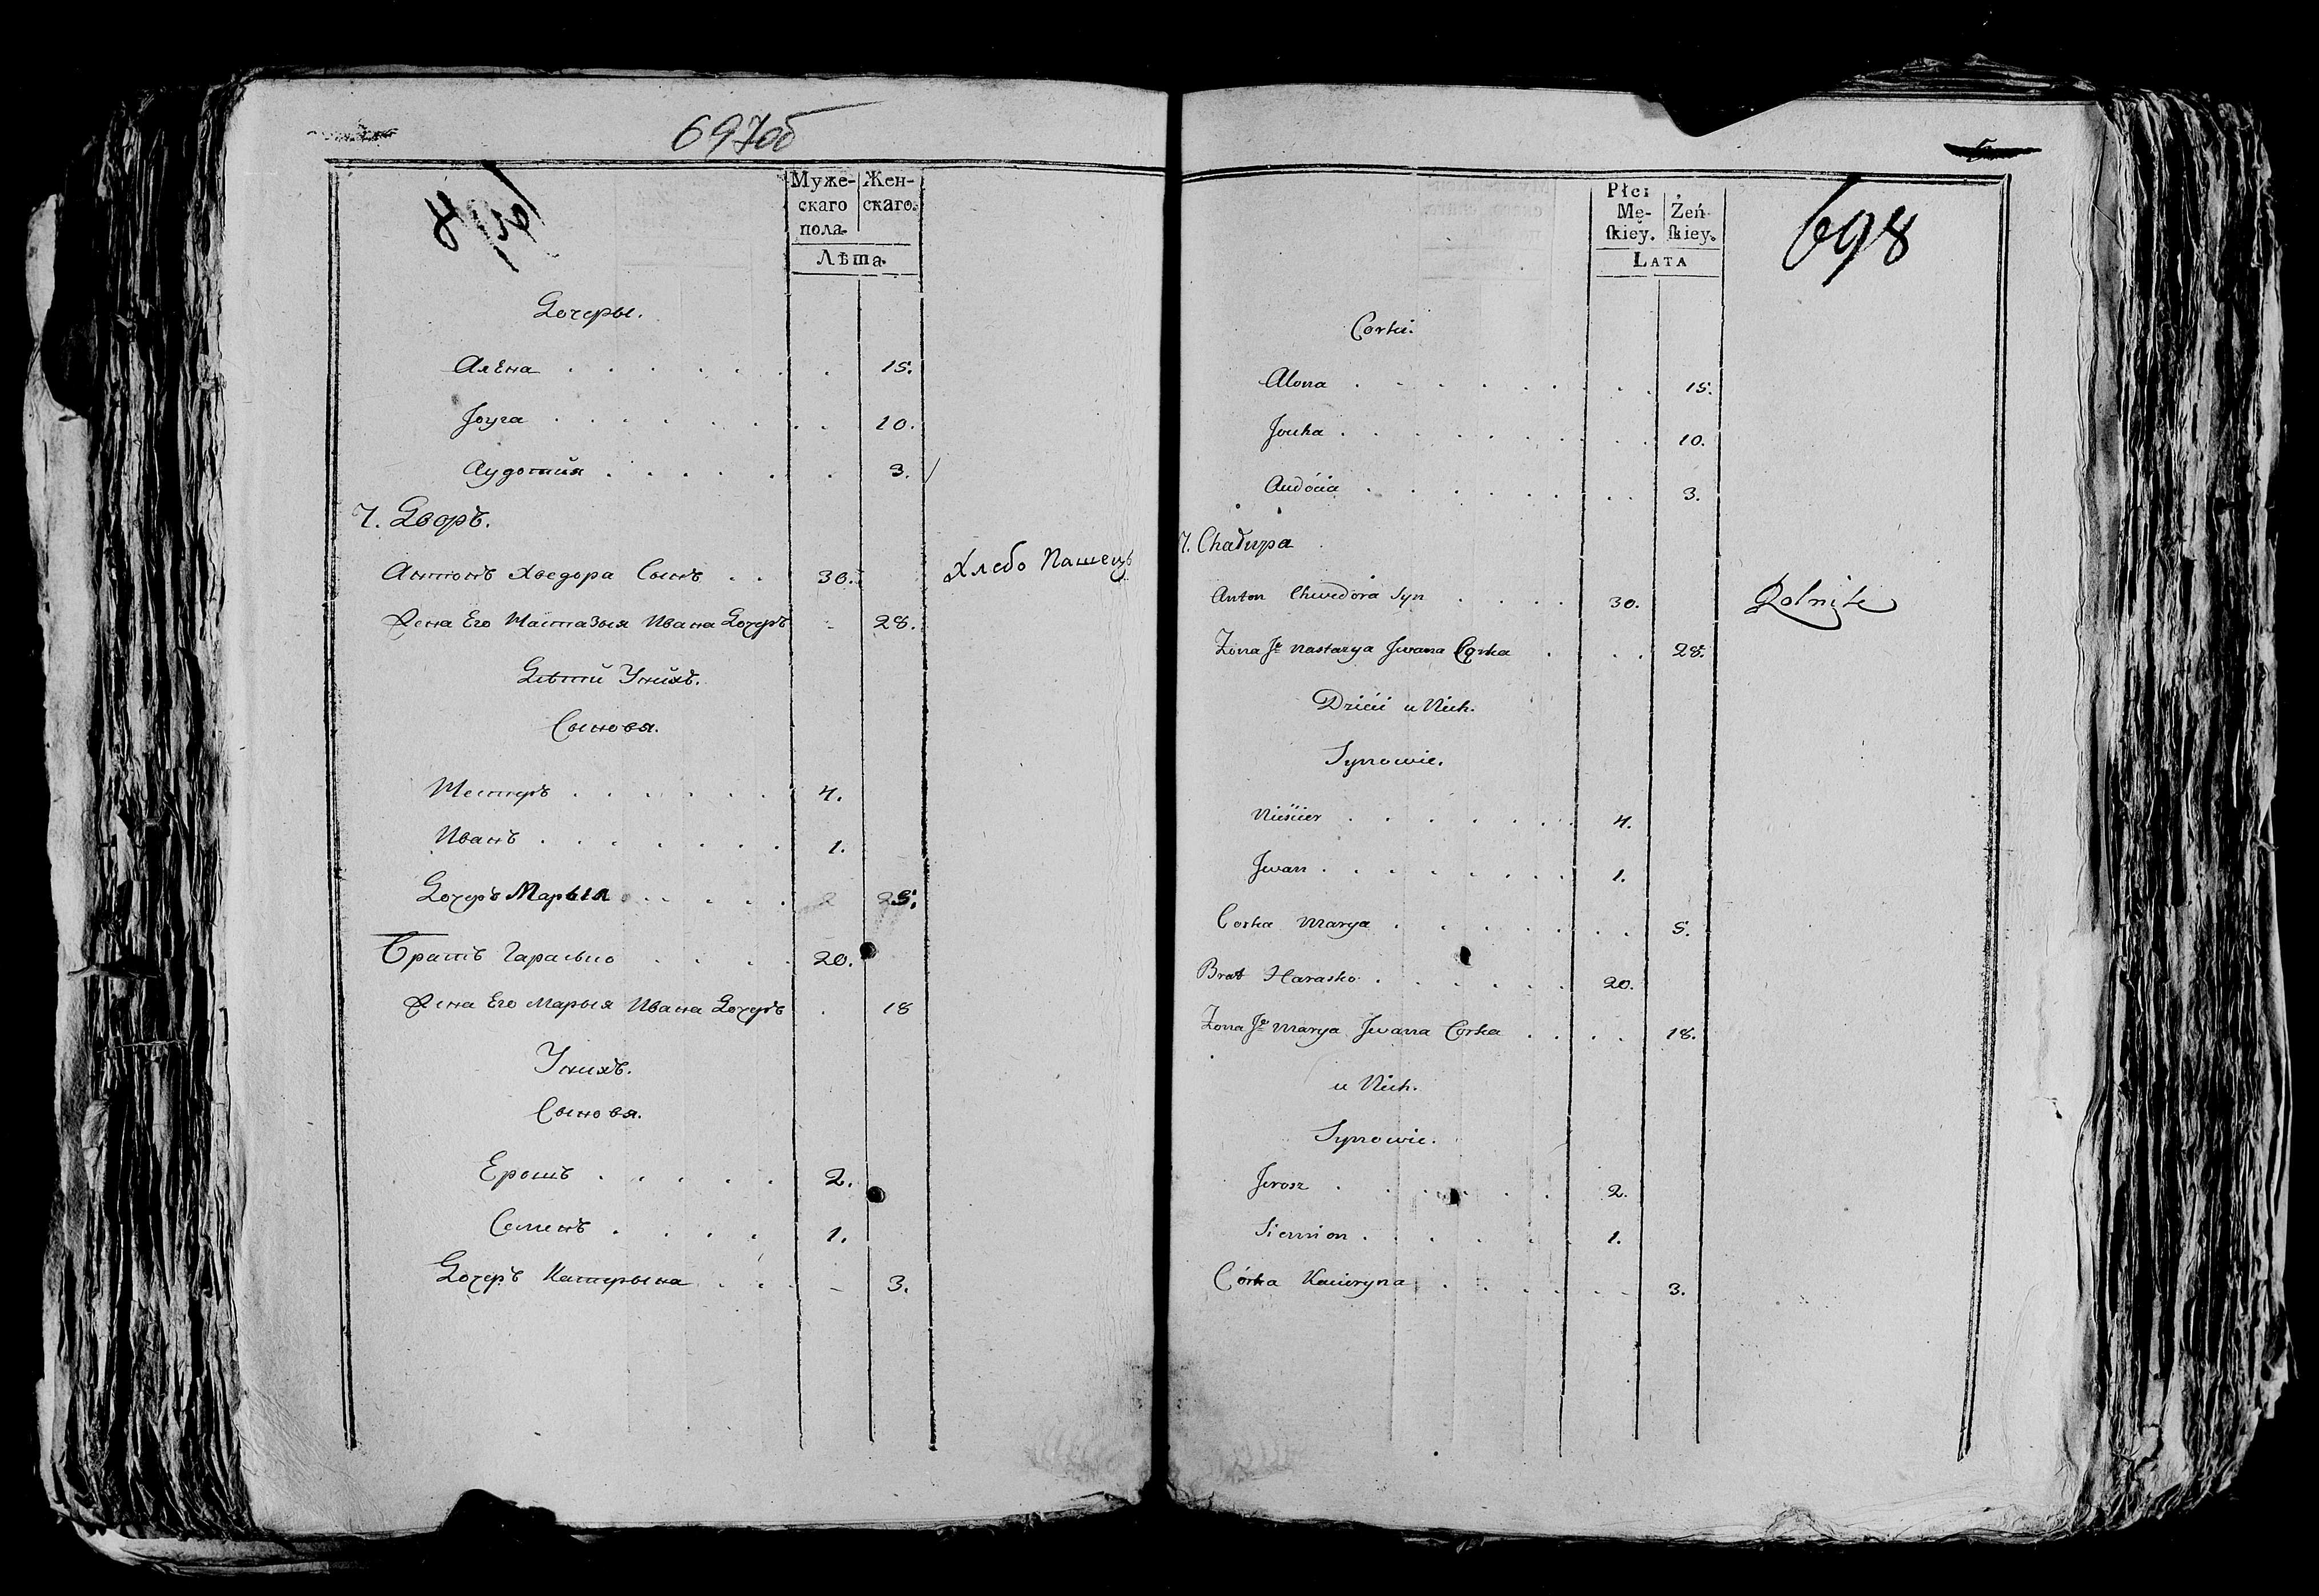 697об
Муже-
скаго
пола.
Жен-
скаго.
Лѣта.
Дочеры.
Алена . . . . . . . 15.
Јоуга . . . . . . . . 10.
Аудотия . . . . . . 3.
7. Дворъ.
Антонъ Хведора Сынъ . . 30. Хлебо Пашецъ
Жена Его Настазыя Ивана Дочеръ - 28.
Дѣти Унихъ.
Сыновя.
Нестеръ . . . . . . 4.
Иванъ . . . . . . . 1.
Дочеръ Марыя . . . . . 5.
Братъ Гарасько . . . . 20.
Жена Его Марыя Ивана Дочеръ . 18
Унихъ.
Сыновя.
Ерошъ . . . . . 2.
Семенъ . . . . 1.
Дочеръ Катерына . . . - 3.
698
Płci
Mę-
ſkiey.
Żeń-
ſkiey.
LATA
Corki.
Alona . . . . . . . . . 15.
Jouha . . . . . . . . . 10.
Audócia . . . . . . . . 3.
7. Chałupa
Anton Chwedora Syn . . . . 30. Rolnik
Żona Jego Nastazya Jwana Corka . . . 28.
Dzieci u Nich.
Synowie.
Nieścier . . . . . . . 4.
Jwan . . . . . . . . 1.
Corka Marya . . . . . . . . 5.
Brat Harasko . . . . . . 20.
Żona Jego Marya Jwana Corka . . . . 18.
u Nich.
Synowie.
Jerosz . . . . . . 2.
Siemion . . . . . . 1.
Córka Kacieryna . . . . . . . 3.